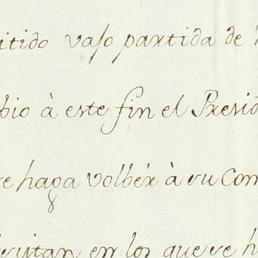 itido vaſo partida de
bio à este fin el Presid
e haga volbér à su Com
en los que se h